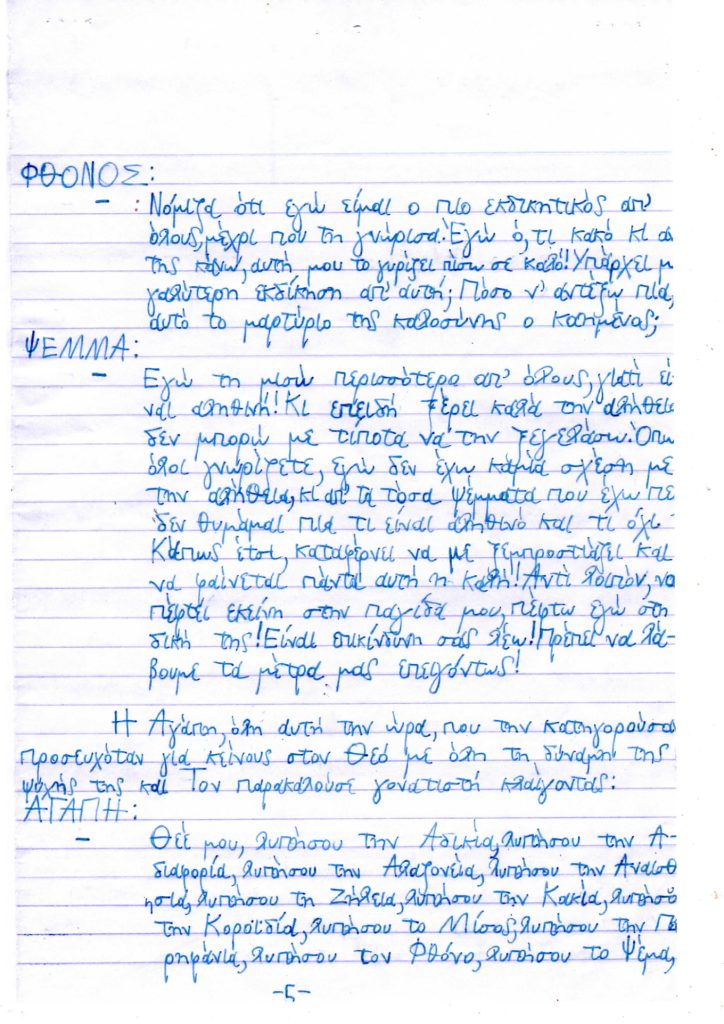 ΦΘΟΝΟΣ:
- : Νόμιζα ότι εγώ είμαι ο πιο εκδικητικός απ'
όλους, μέχρι που τη γνώρισα. Εγώ ό,τι κακό κι α
της κάνω, αυτή μου το γυρίζει πίσω σε καλό! Υπάρχει μ
γαλύτερη εκδίκηση απ' αυτή; Πόσο ν' αντέξω πια,
αυτό το μαρτύριο της καλοσύνης ο καημένος;
ΨΕΜΜΑ:
- Εγώ τη μισώ περισσότερο απ' όλους, γιατί εί-
ναι αληθινή! Κι επειδή ξέρει καλά την αλήθεια
δεν μπορώ με τίποτα να την ξεγελάσω. Όπω
όλοι γνωρίζετε, εγώ δεν έχω καμία σχέση με
την αλήθεια, κι απ' τα τόσα ψέμματα που έχω πε
δεν θυμάμαι πια τι είναι αληθινό και τι όχι.
Κάπως έτσι, καταφέρνει να με ξεμπροστιάζει και
να φαίνεται πάντα αυτή η καλή! Αντί λοιπόν, να
πέφτει εκείνη στην παγίδα μου, πέφτω εγώ στη
δική της! Είναι επικίνδυνη σας λέω! Πρέπει να λά-
βουμε τα μέτρα μας επειγόντως!
Η Αγάπη, όλη αυτή την ώρα, που την κατηγορούσα
προσευχόταν για κείνους στον Θεό με όλη τη δύναμη της
ψυχής της και Τον παρακαλούσε γονατιστή κλαίγοντας:
ΑΓΑΠΗ:
- Θεέ μου, λυπήσου την Αδικία, λυπήσου την Α-
διαφορία, λυπήσου την Αλαζονεία, λυπήσου την Αναισθ
ησία, λυπήσου τη Ζήλεια, λυπήσου την Κακία, λυπήσου
την Κοροϊδία, λυπήσου το Μίσος, λυπήσου την Πε
ρηφάνια, λυπήσου τον Φθόνο, λυπήσου το Ψέμα,
-5-